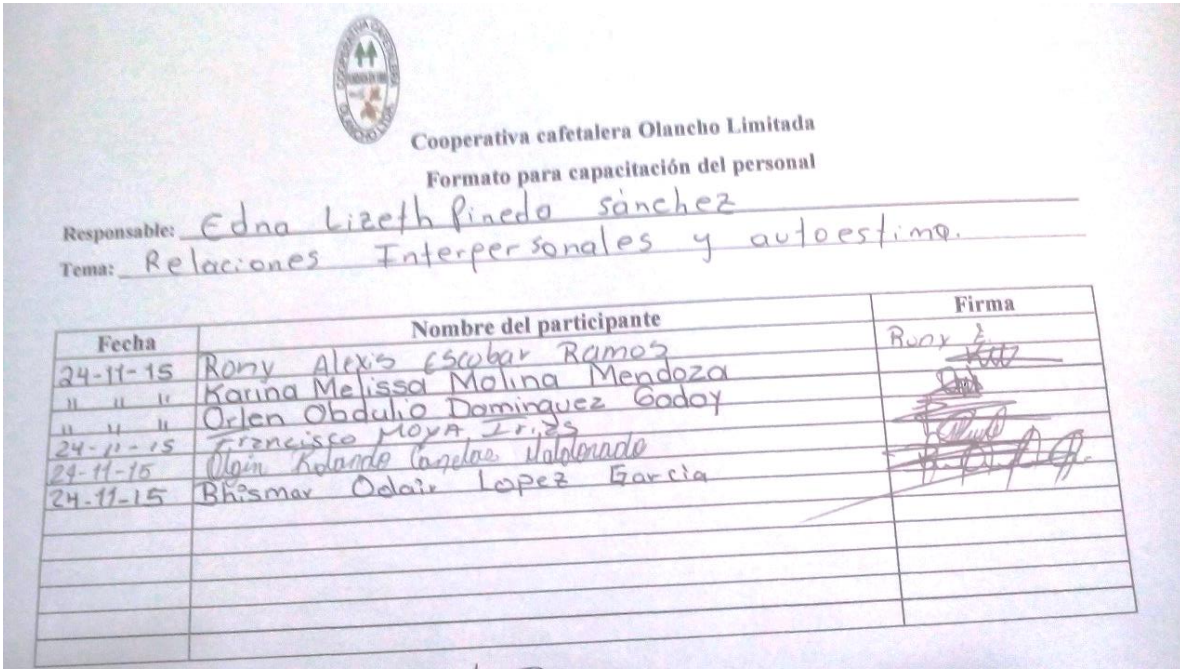 COOPERATIVA CAFETALERA
OLANCHO LTDA
Cooperativa cafetalera Olancho Limitada
Formato para capacitación del personal
Responsable: Edna Lizeth Pineda sánchez
Tema: Relaciones Interpersonales y autoestima.
Fecha Nombre del participante Firma
24-11-15 Rony Alexis Escobar Ramos Rony E.
" " " Karina Melissa Molina Mendoza
" " " Orlen Obdulio Dominguez Godoy
24-11-15 Francisco MoyA
24-11-15 Olgin Rolando Canelas Maldonado
24-11-15 Bhismar Odair Lopez Garcia